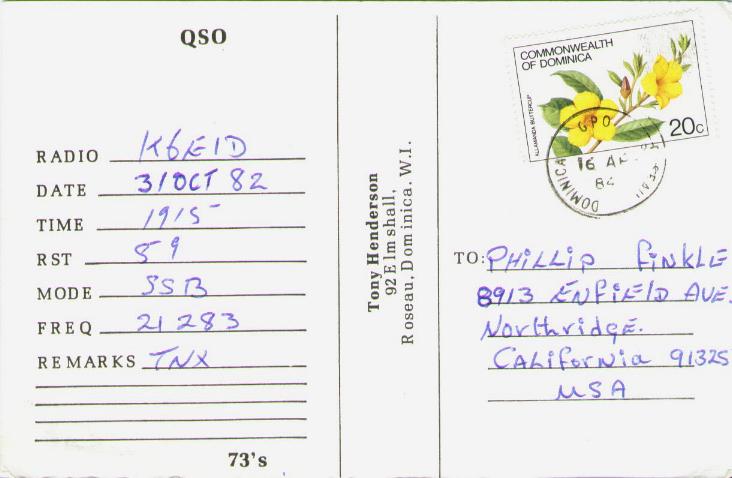 QSO
RADIO K6EID
DATE 31 OCT 82
TIME 1915
RST 59
MODE SSB
FREQ 21 283
REMARKS TNX
73's
Tony Henderson
92 Elmshall,
Roseau, Dominica. W.I.
COMMONWEALTH
OF DOMINICA
ALLAMANDA BUTTERCUP
20c
GPO
16 AP
84
DOMINICA
TO: PHILLIP FINKLE
8913 ENFIELD AVE.
Northridge.
CALiforniA 91325
USA